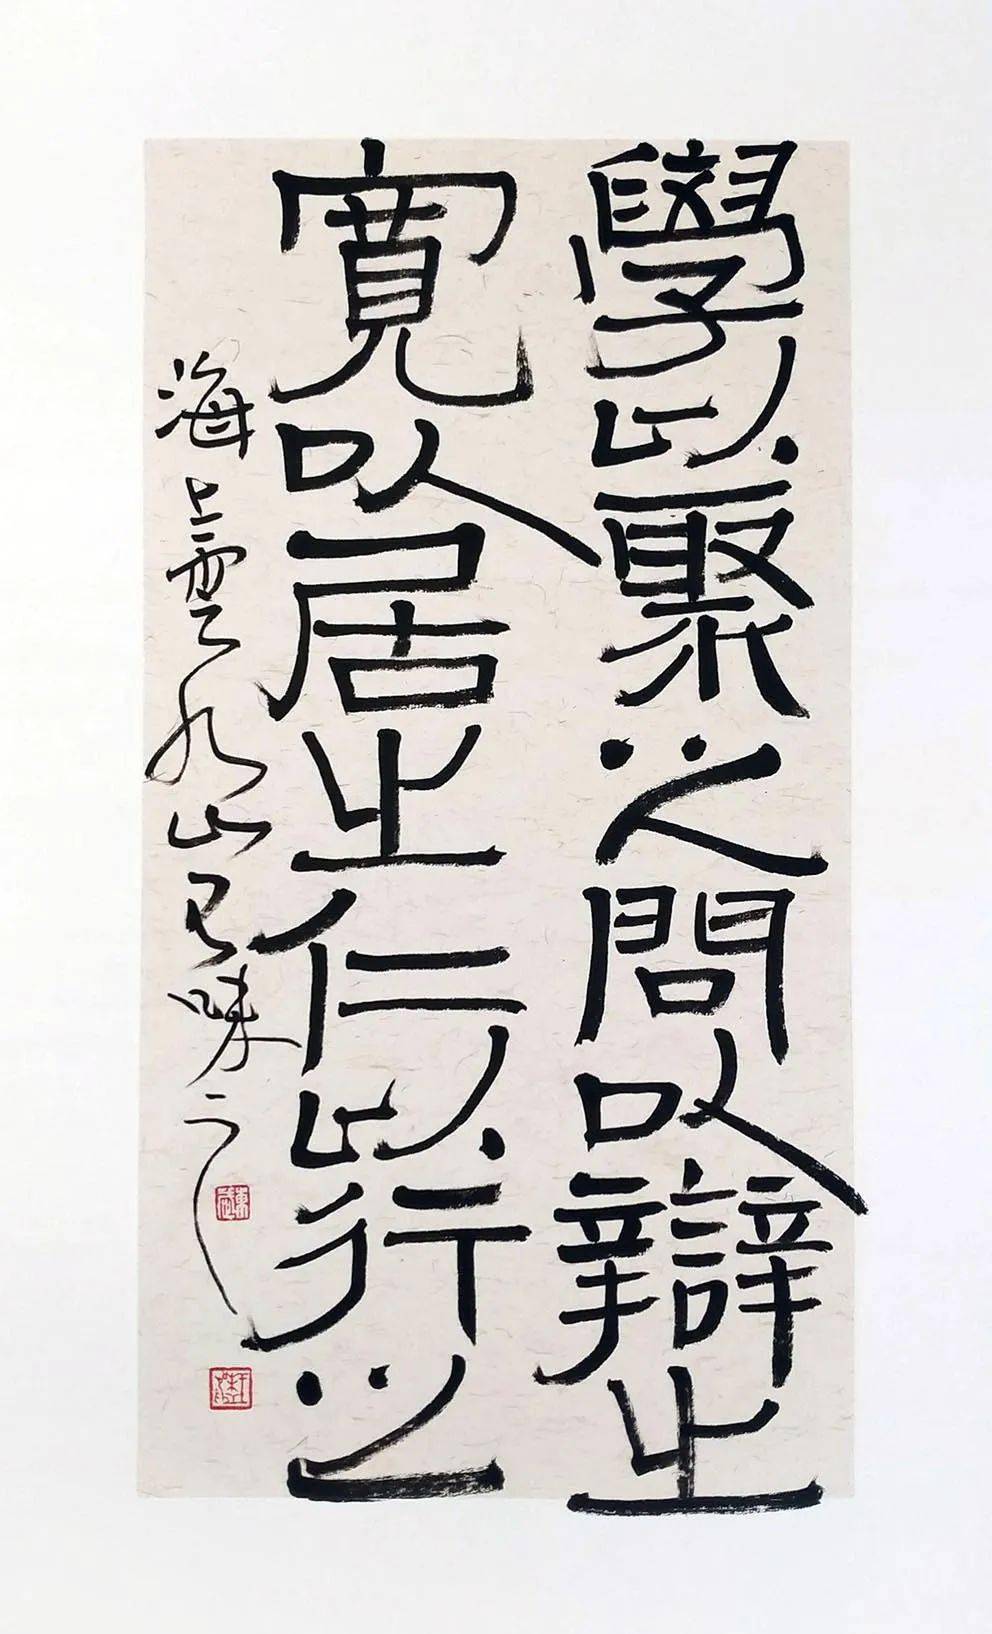 學以聚之問以辯之
寬以居之仁以行之
海上雲九山又味之